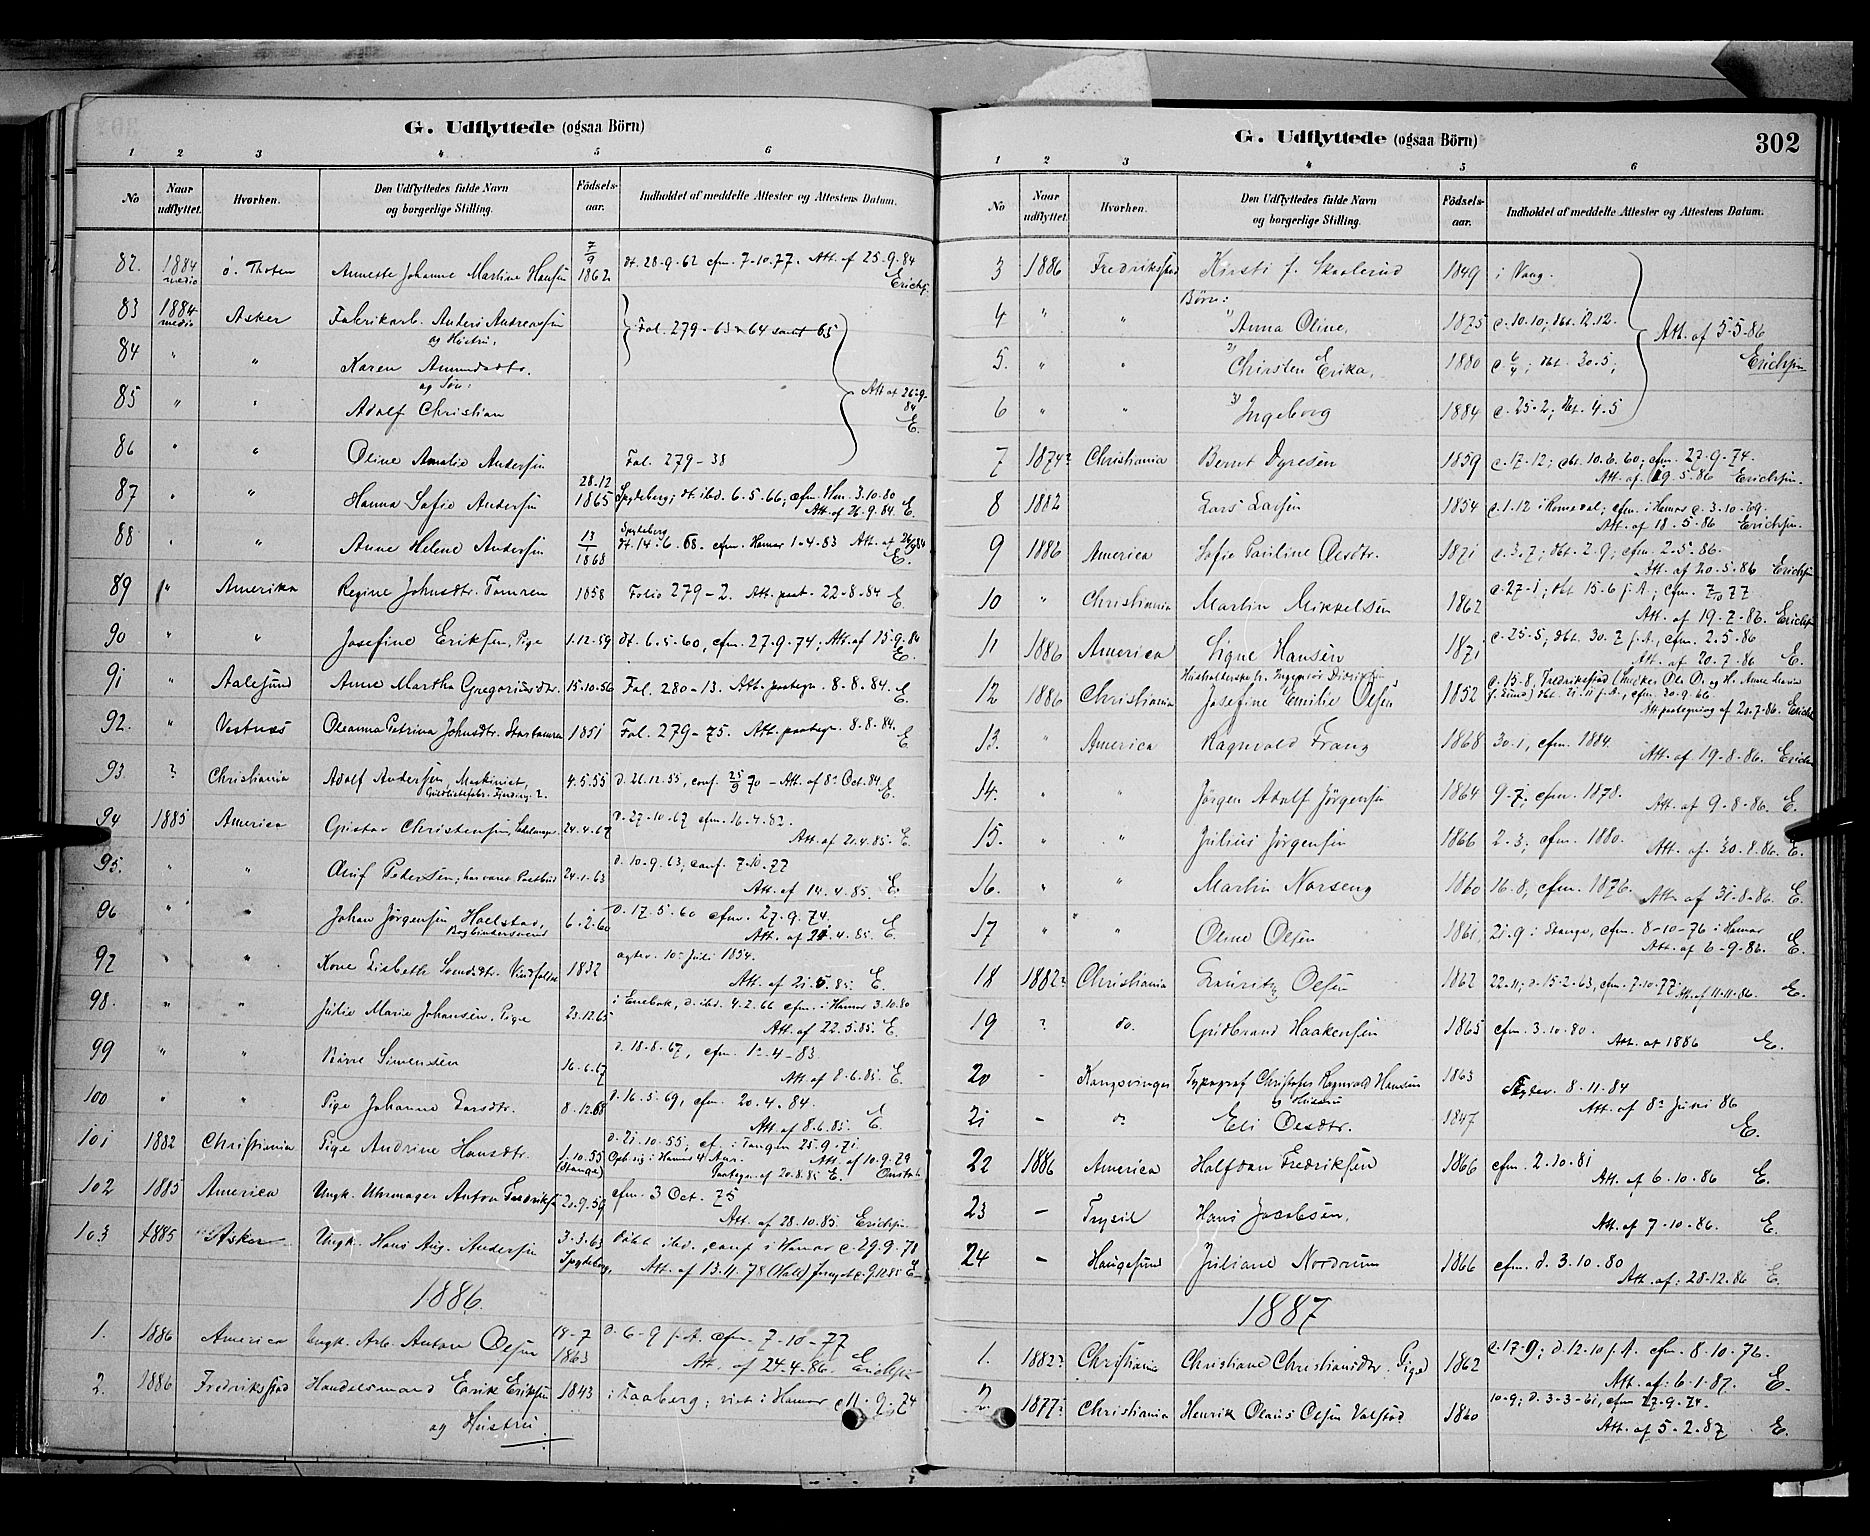 G. Udflyttede (ogsaa Börn)
1 2 3 4 5 6
No Naar udflyttet. Hvorhen. Den Udflyttedes fulde Navn og borgerlige Stilling. Födsels-aar. Indholdet af meddelte Attester og Attestens Datum.
82. 1884 medio ö. Thoten Annette Johanne Martine Hansen 7/9 1862 dt. 28-9-62 cfm. 7-10-77. Att. af 25-9-84
Erichs.
83 1884 medio Asker Fabrikarb. Anders Andreassen Fol. 279-63 64 samt 65
og Hustru,
84 " " Karen Amundsdtr.
og Søn:
85 " " Adolf Christian Att. af 26-9-84 E.
86 " " Oline Amalie Andersen Fol. 279-38
87 " " Hanna Sofie Andersen 28.12 1865 Spydeberg; dt. ibd. 6.5.66; cfm. Ham. 3.10.80
Att. af 26.9.84. E
88 " " Anne Helene Andersen 13/1 1868 Spydeberg dt. 14-6-68. cfm. Hamar 1-4-83 Att. af 26/9 84
E.
89 " Amerika Regine Johnsdtr. Tomren 1858 Folio 279-2. Att. paat. 22-8-84 E
90 " " Josefine Eriksen, Pige 1.12.59 dt. 6.5.60, cfm. 27.9.74; Att. af 15.9.84
E.
91 " Aalesund Anne Martha Gregoriusdtr. 15.10.56 Fol. 280-13. Att. paategn. 8.8.84. E
92. " Vestnæs Oleanna Petrina Johnsdtr. 1851 Fol. 279-75. Att. paategn. 8-8-84. E
93. ? Christiania Adolf Andersen, Maskinist, 4.5.55 d. 26.12.55, conf. 25/9 70 - Att. af 8de Oct. 84 E
94 1885 America Gustav Christensen, 24.4.67 d. 27-10.67 cfm. 16.4.82.
Att. af 21.4.85. E.
95. " " Oluf Pedersen; har været Postbud 24.1.63 d. 10-9.63; conf. 7.10.77
Att. af 14.4.85. E.
96 " " Johan Jørgensen Hoelstad, 6.2.60 d. 17.5.60 cfm. 27.9.74.
Bogbindersvend Att. af 21.4.85. E
97 " " Kone Lisbeth Svendsdtr. 1832 agtev. 10de Juli 1854.
Att. af 21.5.85. E.
98. " " Julie Marie Johansen, Pige 23.12.65 i Enebak, d. ibd. 4.2.66 cfm. i Hamar 3.10.80
Att. af 22.5.85. E.
99 " " Børre Simensen 16.6.67 d. 18-8-67, cfm. 1-4-83
Att. af 8.6.85. E.
100 " " Pige Johanne Larsdtr. 8.12.68 d. 16.5.69, cfm. 20.4.84.
Att. af 8.6.85. E.
101 1882 Christiania Pige Andrine Hansdtr. 1.10.55 (Stange) d. 21.10.55; cf. i Tangen 25.9.71.
Oph. sig i Hamar 4 Aar. Att. af 10.9.79
Paategn. af 20.8.85 E.
102 1885 America Ungk. Uhrmager Anton Fredriksen 20.9.59 cfm. 3 Oct. 75
Att. af 28.10.85. Erichsen
103 1885 Asker Ungk. Hans Aug. Andersen 3.3.63 Spydeberg, døbt ibd., conf. i Hamar c. 29.9.78
Att. af 13.11.78
1886.
1. 1886 America Ungk. Arb. Anton Olsen 14-7 1863 d. 6-9 s.A. cfm. 7-10-77
Att. af 24.4.86. Erichsen
2. 1886 Fredriksstad Handelsmand Erik Eriksen 1843 i Faaberg; viet i Hamar
og Hustru
G. Udflyttede (ogsaa Börn) 302
1 2 3 4 5 6
No Naar udflyttet. Hvorhen. Den Udflyttedes fulde Navn og borgerlige Stilling. Födsels-aar. Indholdet af meddelte Attester og Attestens Datum.
3 1886 Fredriksstad Kirsti f. Skaalerud 1849 i Vang.
Børn:
4 " " 1) Anna Oline, 1875 c. 10.10; dbt. 12.12. Att. af 5-5-86
5. " " 2) Chirsten Erika, 1880 c. 6/4; dbt. 30.5; Erichsen
6 " " 3) Ingeborg 1884 c. 25-2; dbt. 4.5
7 1874? Christiania Bernt Dyresen 1859 c. 17-12; dbt. 10.6.60; cfm. 27-9-74.
Att. af 19.5.86 Erichsen.
8 1882 Lars Larsen 1854 c. 1.12 i Romedal; cfm. i Hamar c. 3.10.69.
Att. af 18.5-86 Erichsen.
9 1886 America Sofie Pauline Olsdtr. 1871 c. 3.7; dbt. 2-9; cfm. 2-5.86.
Att. af 20.5.86 Erichsen
10 " Christiania Martin Mikkelsen 1862 c. 27-1; dbt 15-6 s.A.; cfm. 7/10 77
Att. af 19.7.86. Erichsen
11 1886 America Signe Hansen 1871 c. 25-5; dbt. 30.7 s.A., cfm. 2.5.86
Att. af 20.7.86 E.
12 1886 Christiania Josefine Emilie Olsen 1852 c. 15-8, Fredriksstad
dbt. 21.11 s.A., cfm. 30.9.66.
Att. paategning af 20.7.86. Erichs
13. " America Ragnvald Franz 1868 30.1, cfm. 1884.
Att. af 19-8-86. Erich
14. " " Jørgen Adolf Jørgensen 1864 9-7; cfm. 1878.
Att. af 9-8-86. E.
15. " " Julius Jørgensen 1866 2-3; cfm. 1880.
Att. af 30.8.86. E.
16. " " Martin Norseng 1860 16.8, cfm. 1876.
Att. af 31-8-86. E.
17 " " Oline Olsen 1861 21.9 i Stange, cfm. 8-10-76 i Hamar
Att. af 6-9-86. E.
18 1882? Christiania Lauritz Olsen 1862 22.11; d. 15.2.63, cfm. 7.10.77 Att. af 11-11-86. E.
19 ? do. Gudbrand Haakensen 1865 cfm. 3.10.80.
Att. af 1886 E.
20 - Kongsvinger Typograf Christofer Ragnvald Hansen 1863 Agtev. 8-11-84
og Hustru Att. af 8de Juni 86
21 - do Eli Olsdtr. 1847 E.
22 1886 America Halfdan Fredriksen 1866 cfm. 2.10.81
Att. af 6-10-86 E.
23 - Trysil Hans Jacobsen,
Att. af 7-10-86. E.
24 - Haugesund Juliane Nordrum 1866 cfm. d. 3.10.80
Att. af: 28-12.86 E.
1887
1. 1882? Christiania Christiane Christiansdtr. Pige 1862 c. 17-9; d. 12.10 s.A. cfm. 8-10.76.
Att. af: 6-1-87. E.
2. 1877? Christiania Henrik Olaus Olsen Valstad 1860 10-9; d. 3-3-61, cfm 27.9.74.
Att. af 5-2.87 E.